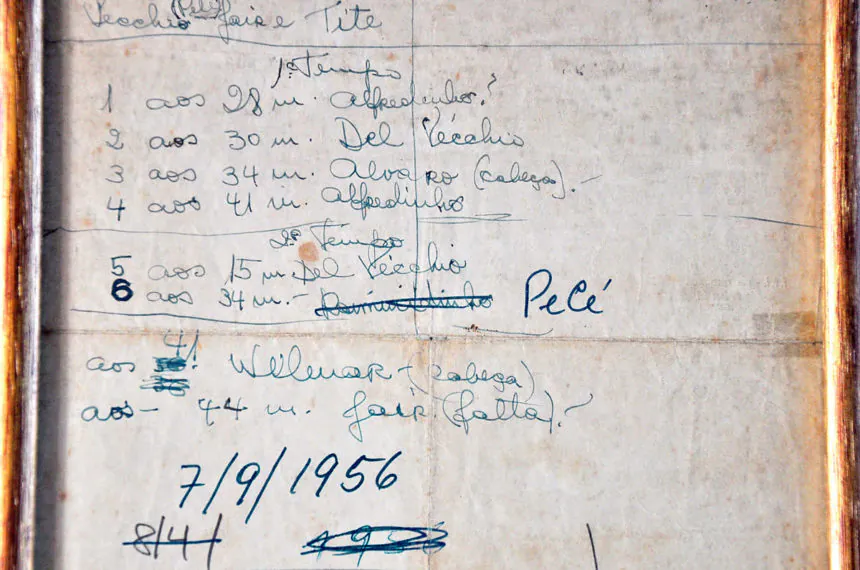 Vecchio (Pelé) Jair e Tite
1º Tempo
1 aos 28 m. Alfredinho.
2 aos 30 m. Del Vecchio
3 aos 34 m. Alvaro (cabeça).-
4 aos 41 m. Alfredinho
2º Tempo
5 aos 15 m. Del Vecchio
6 aos 34 m.- Pelé
aos 41! Wilmar-(cabeça)
aos- 44 m. Jair (falta).-
7/9/1956
8/4/